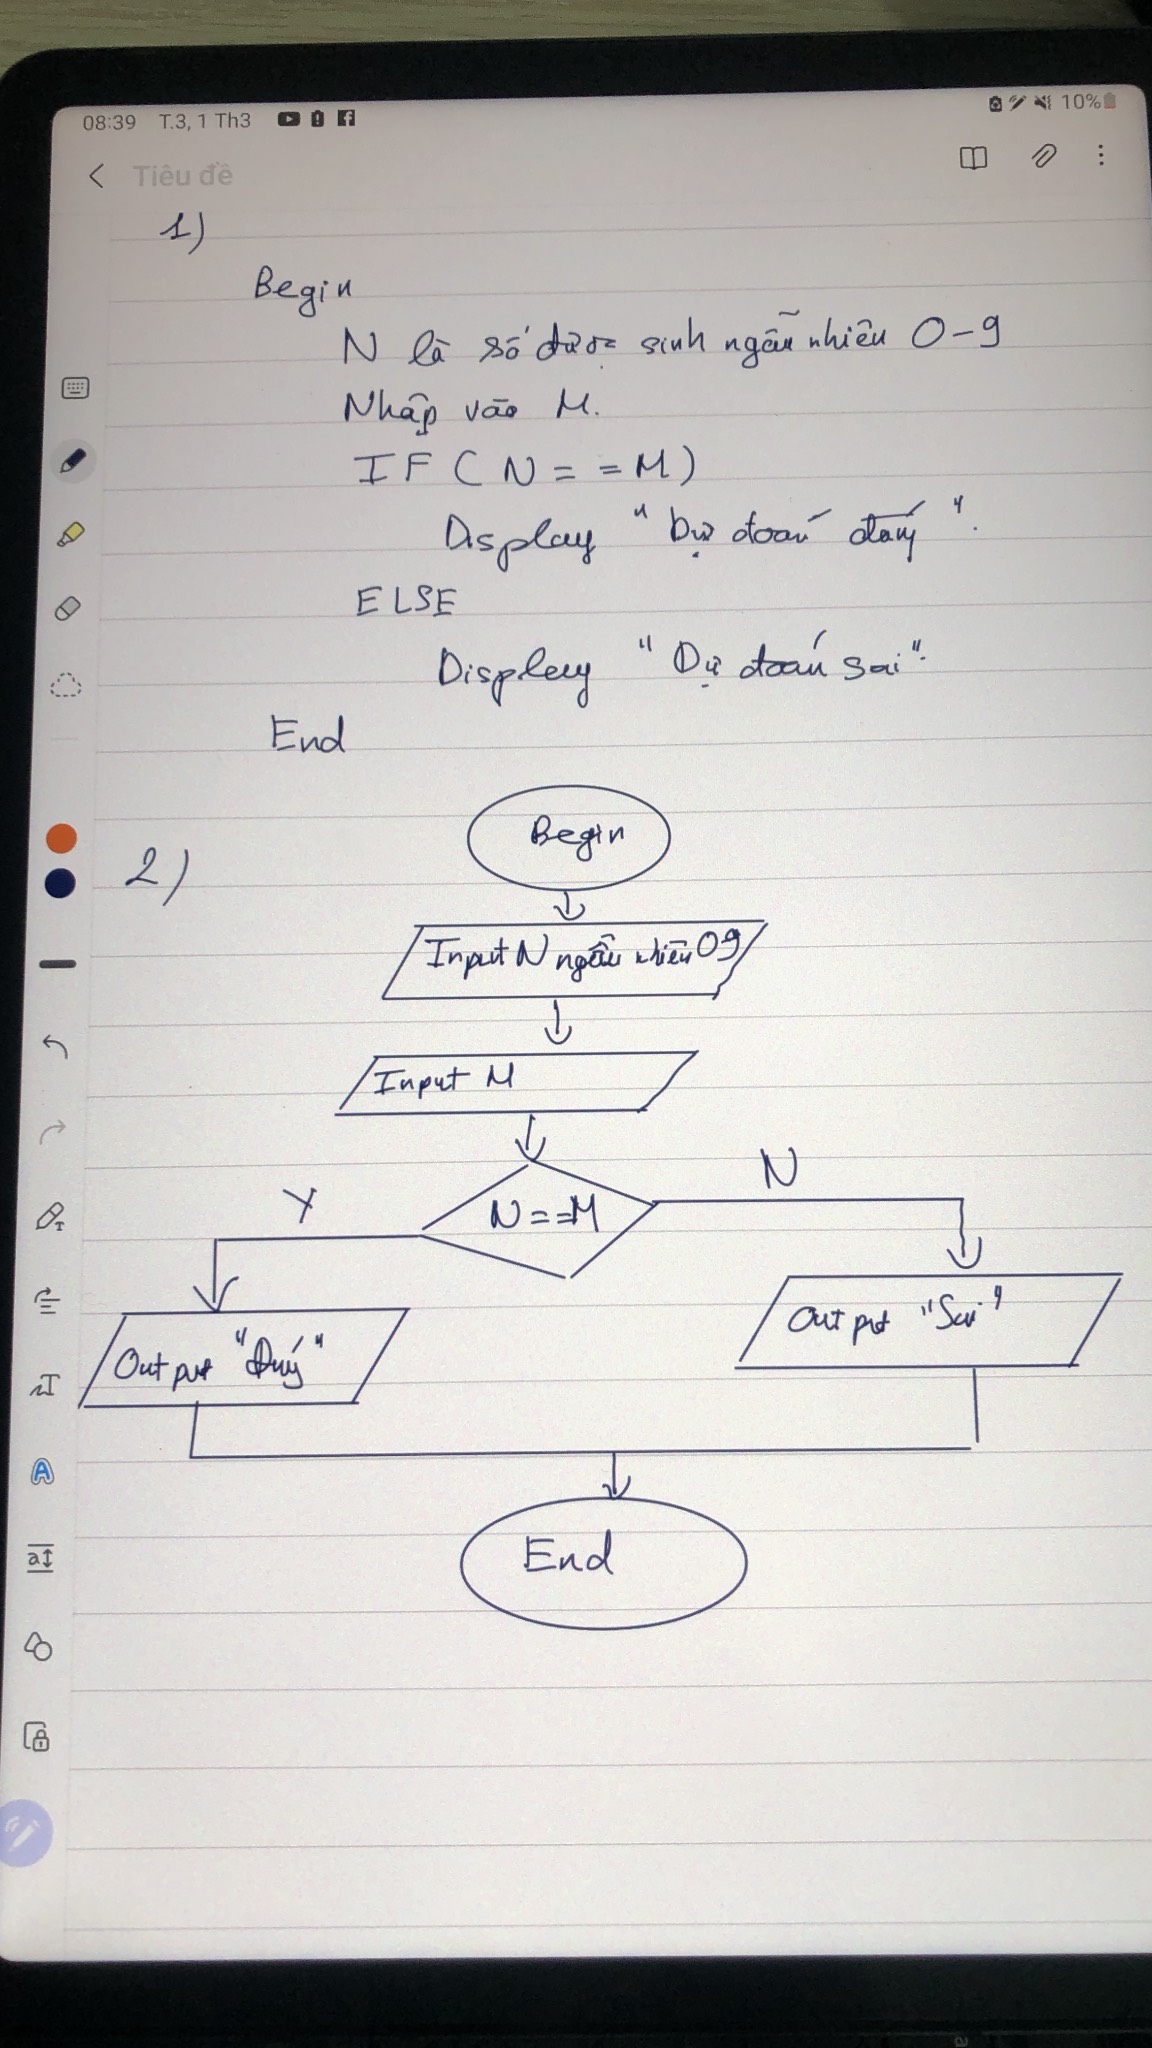 08:39 T.3, 1 Th3 10%
Tiêu đề
1)
Begin
N là số được sinh ngẫu nhiên 0-9
Nhập vào M.
IF ( N = = M )
Display " Dự đoán đúng ".
ELSE
Display " Dự đoán sai ".
End
2)
Begin
Input N ngẫu nhiên 09
Input M
N==M
Y
N
Output "Đúng"
Output "Sai"
End